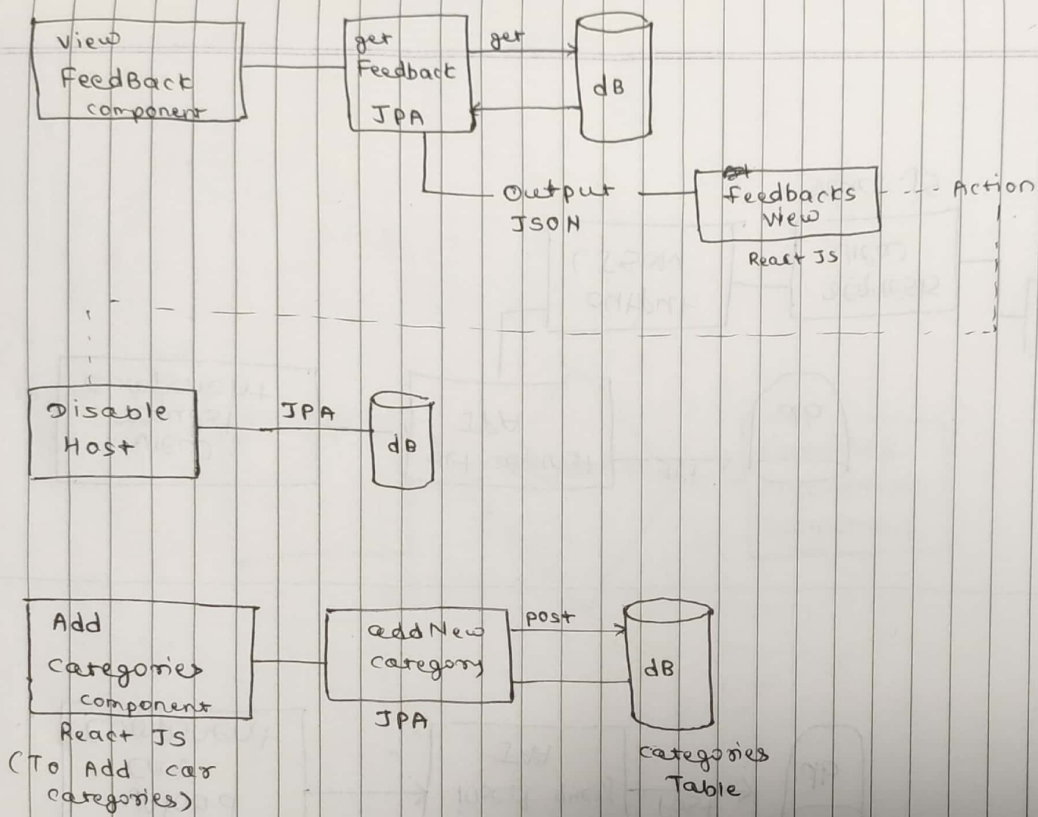 view
FeedBack
component
get
Feedback
JPA
get
dB
Output
JSON
feedbacks
view
React JS
Action
Disable
Host
JPA
dB
Add
categories
component
React JS
(To Add car
categories)
addNew
category
JPA
post
dB
categories
Table